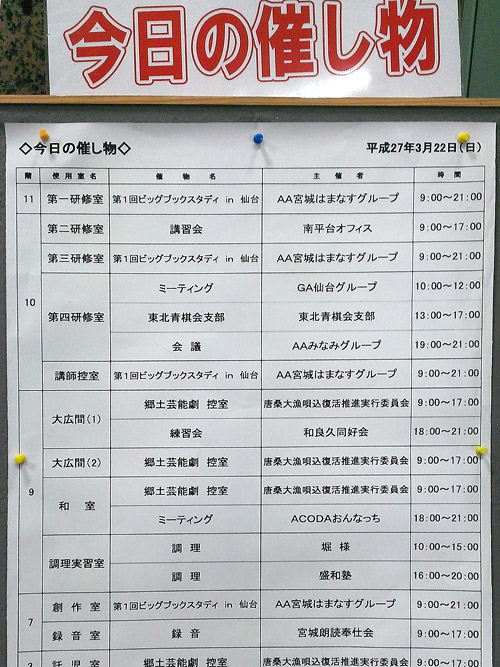 今日の催し物
◇今日の催し物◇ 平成27年3月22日(日)
階 使用室名 催物名 主催者 時間
11 第一研修室 第1回ビッグブックスタディ in 仙台 AA宮城はまなすグループ 9:00～21:00
10 第二研修室 講習会 南平台オフィス 9:00～17:00
第三研修室 第1回ビッグブックスタディ in 仙台 AA宮城はまなすグループ 9:00～21:00
第四研修室 ミーティング GA仙台グループ 10:00～12:00
東北青棋会支部 東北青棋会支部 13:00～17:00
会議 AAみなみグループ 19:00～21:00
講師控室 第1回ビッグブックスタディ in 仙台 AA宮城はまなすグループ 9:00～21:00
9 大広間(1) 郷土芸能劇 控室 唐桑大漁唄込復活推進実行委員会 9:00～17:00
練習会 和良久同好会 18:00～21:00
大広間(2) 郷土芸能劇 控室 唐桑大漁唄込復活推進実行委員会 9:00～17:00
和室 郷土芸能劇 控室 唐桑大漁唄込復活推進実行委員会 9:00～17:00
ミーティング ACODAおんなっち 18:00～21:00
調理実習室 調理 堀様 10:00～15:00
調理 盛和塾 16:00～20:00
7 創作室 第1回ビッグブックスタディ in 仙台 AA宮城はまなすグループ 9:00～21:00
録音室 録音 宮城朗読奉仕会 9:00～17:00
託児室 郷土芸能劇 控室 唐桑大漁唄込復活推進実行委員会 9:00～17:00